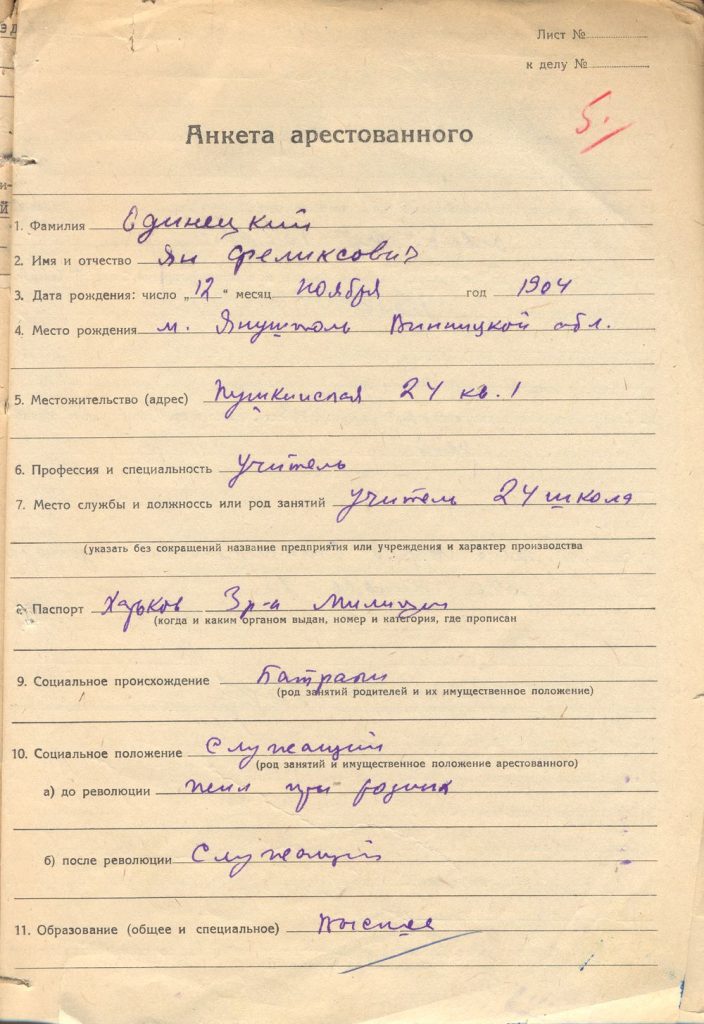 Лист №
к делу №
5.
Анкета арестованного
1. Фамилия Одинецкий
2. Имя и отчество Ян Феликсович
3. Дата рождения: число „12“ месяц ноября год 1904
4. Место рождения м. Янушполь Винницкой обл.
5. Местожительство (адрес) Пушкинская 24 кв. 1
6. Профессия и специальность учитель
7. Место службы и должноссь или род занятий учитель 24 школа
(указать без сокращений название предприятия или учреждения и характер производства
8. Паспорт Харьков 3 р-н Милиции
(когда и каким органом выдан, номер и категория, где прописан
9. Социальное происхождение Батраки
(род занятий родителей и их имущественное положение)
10. Социальное положение Служащий
(род занятий и имущественное положение арестованного)
а) до революции жил при
б) после революции Служащий
11. Образование (общее и специальное) Высшее